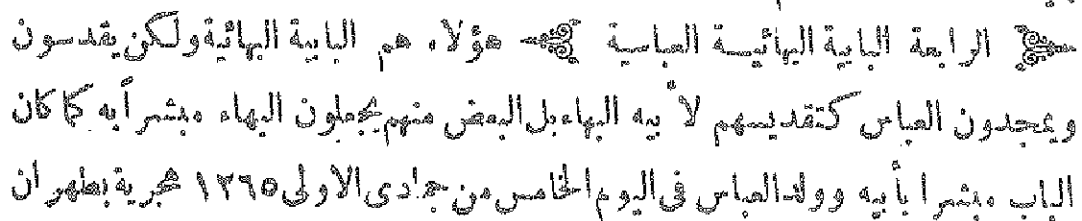 الرابعة البابية البهائية العباسية هؤلاء هم البابية البهائية ولكن يقدسون
ويمجدون العباس كتقديسهم لأبيه البهاء بل البعض منهم يجعلون البهاء مبشراً به كما كان
الباب مبشرا بأبيه وولد العباس في اليوم الخامس من جمادى الاولى ١٢٦٥ هجرية بطهران